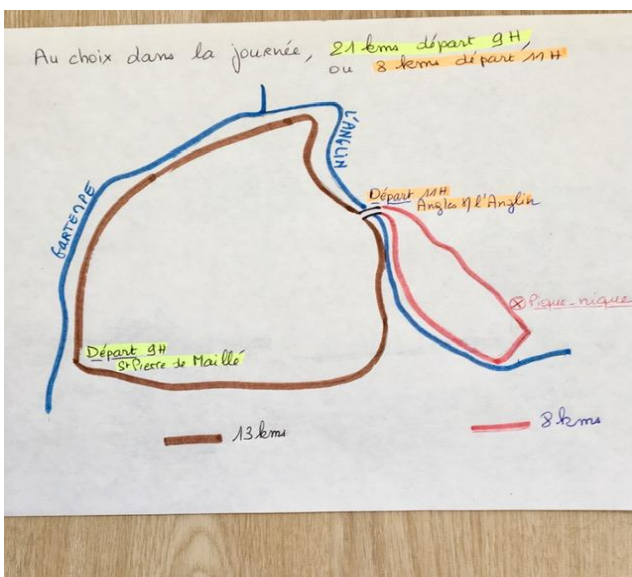 Au choix dans la journée, 21 kms départ 9H
ou 8 kms départ 11H
L'ANGLIN
GARTEMPE
Départ 11H
Angles s/ l'Anglin
Pique-nique
Départ 9H
St Pierre de Maillé
13 kms
8 kms